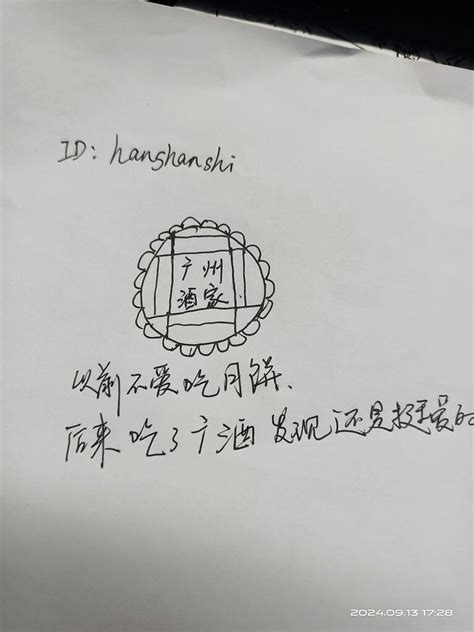 ID: hanshanshi
广州
酒家
以前不爱吃月饼.
后来吃了广酒发现还是挺爱的
2024.09.13 17:28